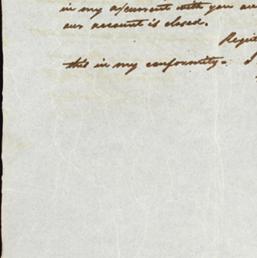 in my a/current with you and
our account is closed.
Regist
this in my conformity. I